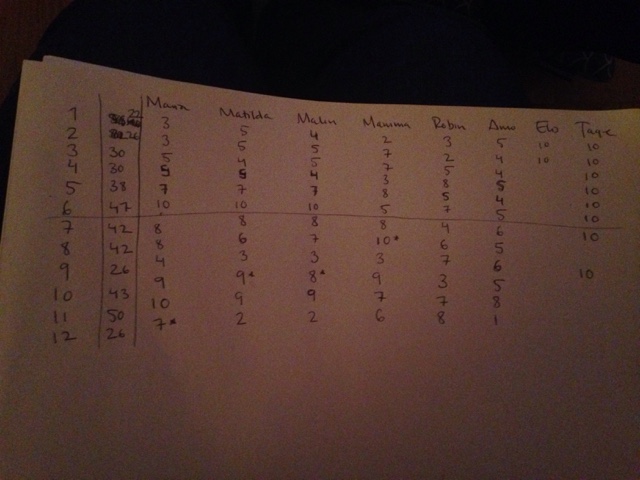 Matilda Malin Mamma Robin Elo
1 22 3 5 4 2 3 5 10 10
2 26 3 5 5 7 2 4 10 10
3 30 5 4 5 7 5 4 10
4 30 5 5 4 3 8 5 10
5 38 7 7 7 8 5 4 10
6 47 10 10 10 5 7 5 10
7 42 8 8 8 8 4 6
8 42 8 6 7 10* 6 5
9 26 4 3 3 3 7 6 10
10 43 9 9* 8* 9 3 5
11 50 10 9 9 7 7 8
12 26 7* 2 2 6 8 1